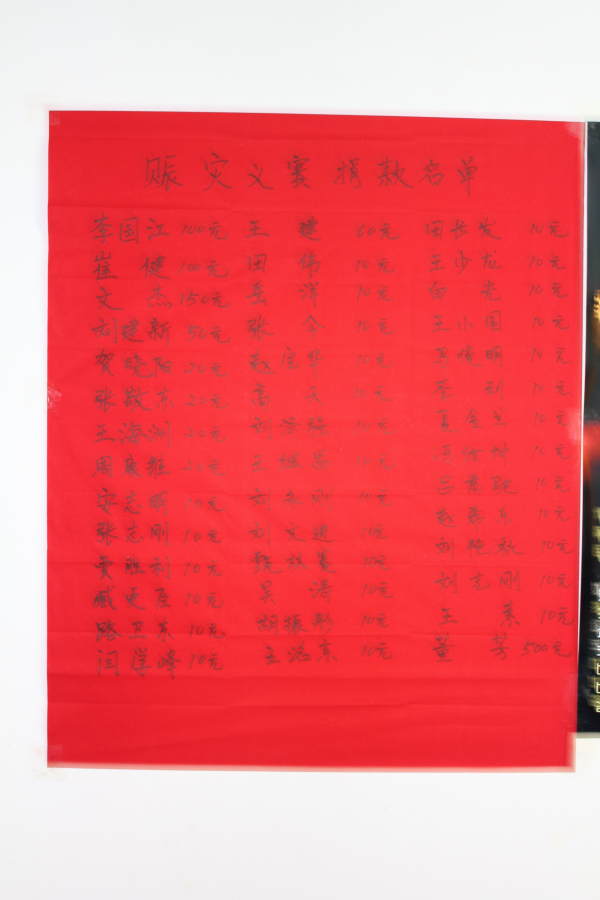 赈灾义赛捐款名单
李国江 100元 王建 60元 田长发 10元
崔健 100元 田伟 10元 王少龙 10元
文杰 150元 岳洋 10元 白光 10元
刘建新 50元 张令 10元 王小国 10元
贺晓阳 20元 赵宝华 10元 俊明 10元
张敬东 20元 高 10元 10元
王海洲 20元 刘 10元 10元
周康雄 20元 10元 10元
安志明 10元 刘永刚 10元 10元
张志刚 10元 刘文建 10元 赵希乐 10元
贾胜利 10元 10元 刘艳秋 10元
臧更臣 10元 吴涛 10元 刘志刚 10元
路卫东 10元 胡振彤 10元 王 10元
闫学峰 10元 王悦东 10元 董芳 500元